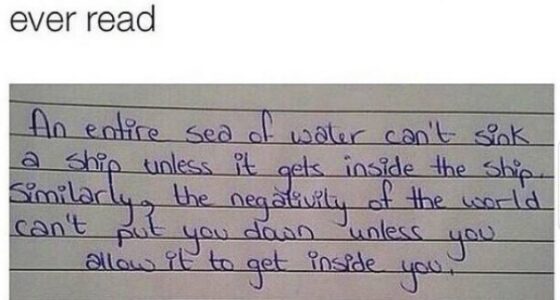 ever read
An entire sea of water can't sink
a ship unless it gets inside the ship.
Similarly, the negativity of the world
can't put you down unless you
allow it to get inside you.